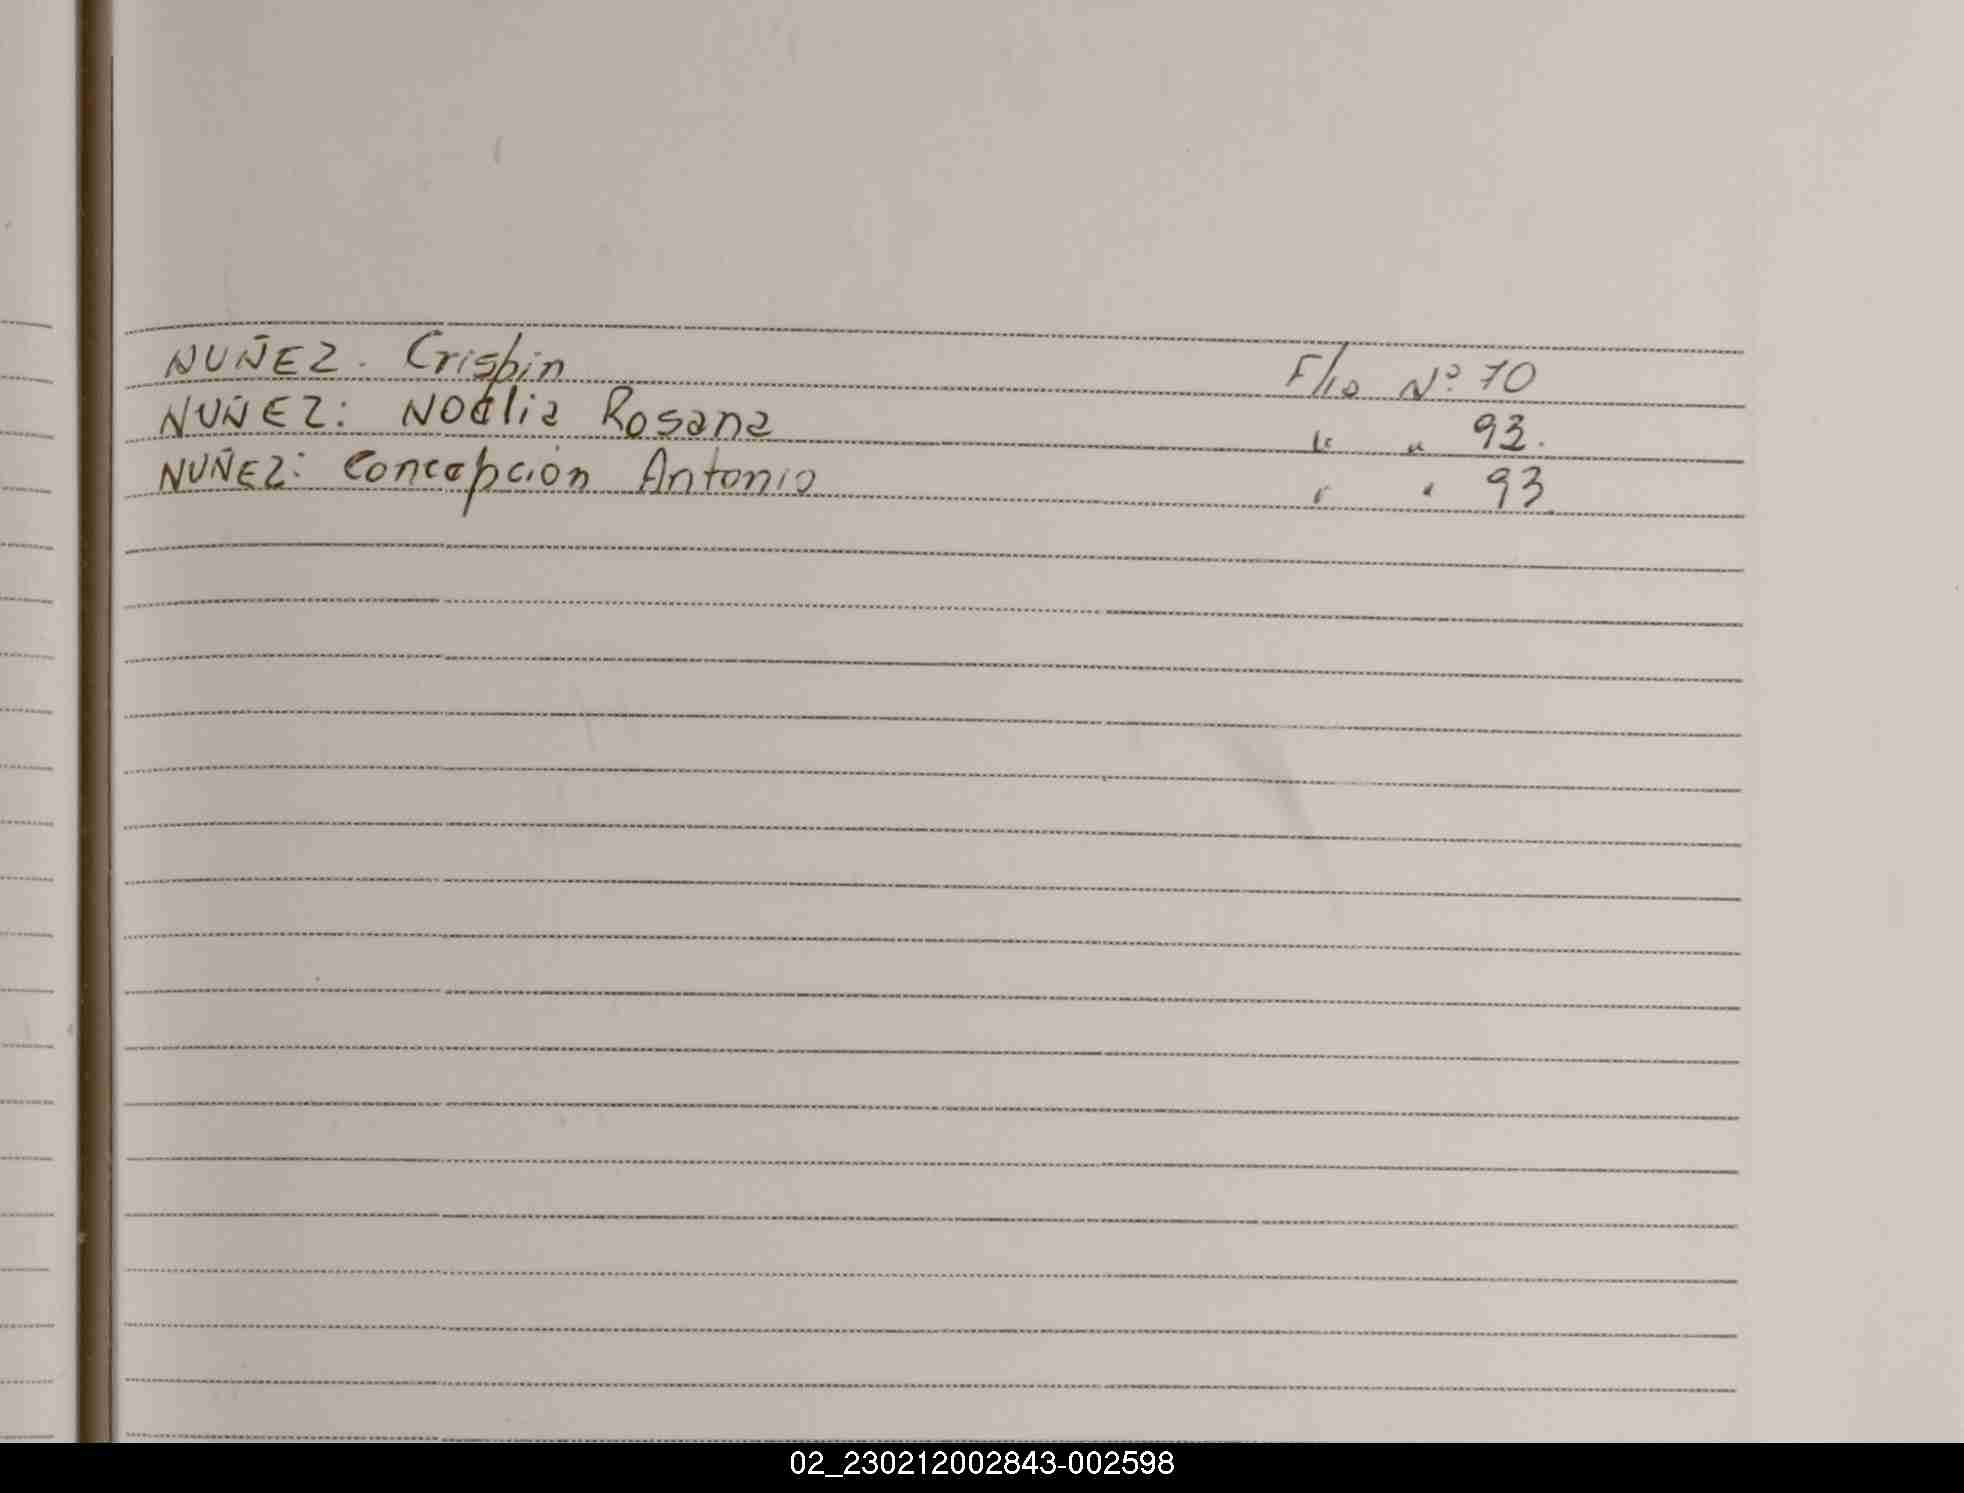 NUÑEZ. Crispin F/io Nº 70
NUÑEZ: NOelia Rosana " " 93.
NUÑEZ: Concepción Antonio " " 93.
02_230212002843-002598